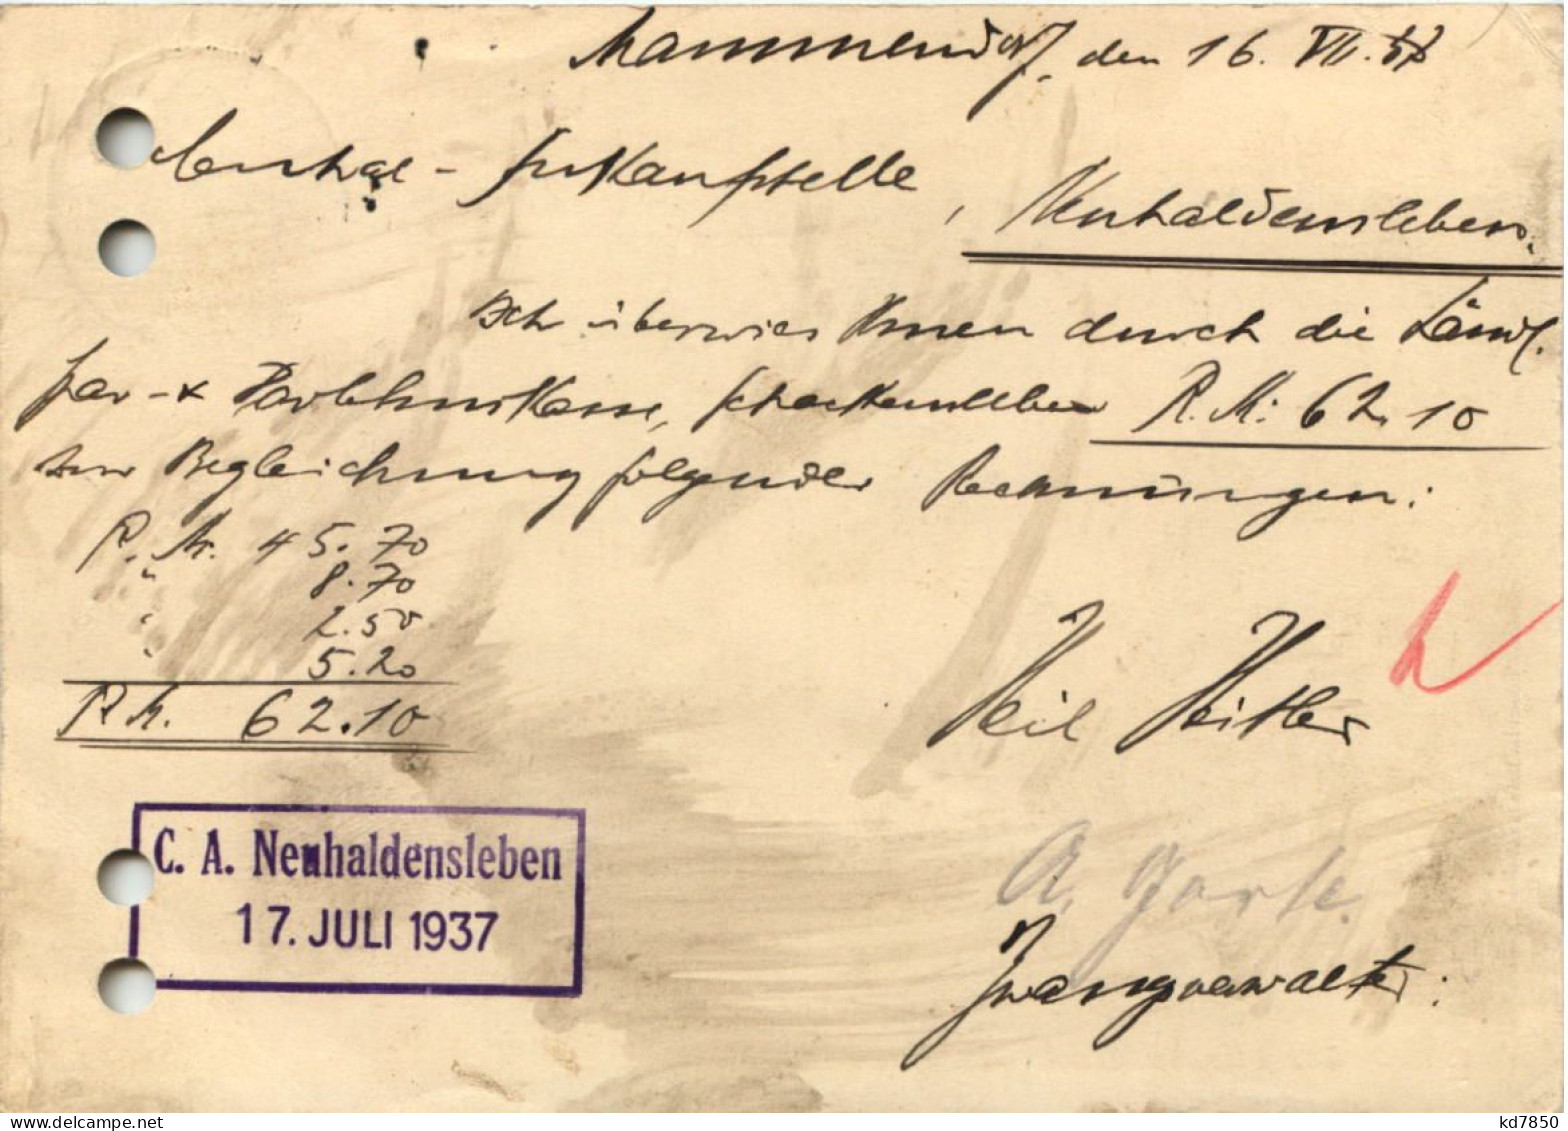 Mammendorf, den 16. VII. 37
Central-Ankaufstelle, Neuhaldensleben.
Ich überwies Ihnen durch die Ländl.
Spar- & Darlehnskasse, Schackensleben R.M. 62.10
zur Begleichung folgender Rechnungen:
R.M. 45.70
" 8.70
" 2.50
" 5.20
R.M. 62.10
Heil Hitler
A. Garke.
Zwangsverwalter:
C. A. Neuhaldensleben
17. JULI 1937
kd7850